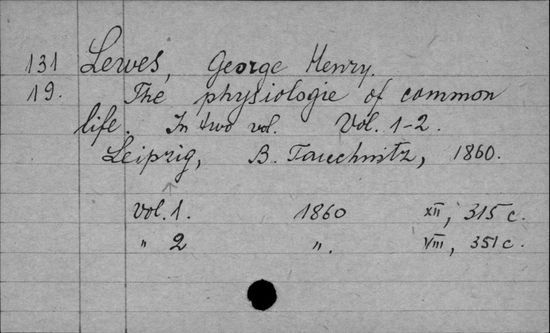 131 Lewes, George Henry.
19. The physiologie of common
life. In two vol. Vol. 1-2.
Leipzig, B. Tauchnitz, 1860.
Vol. 1. 1860 XII, 315 c.
" 2 ". VIII, 351 c.